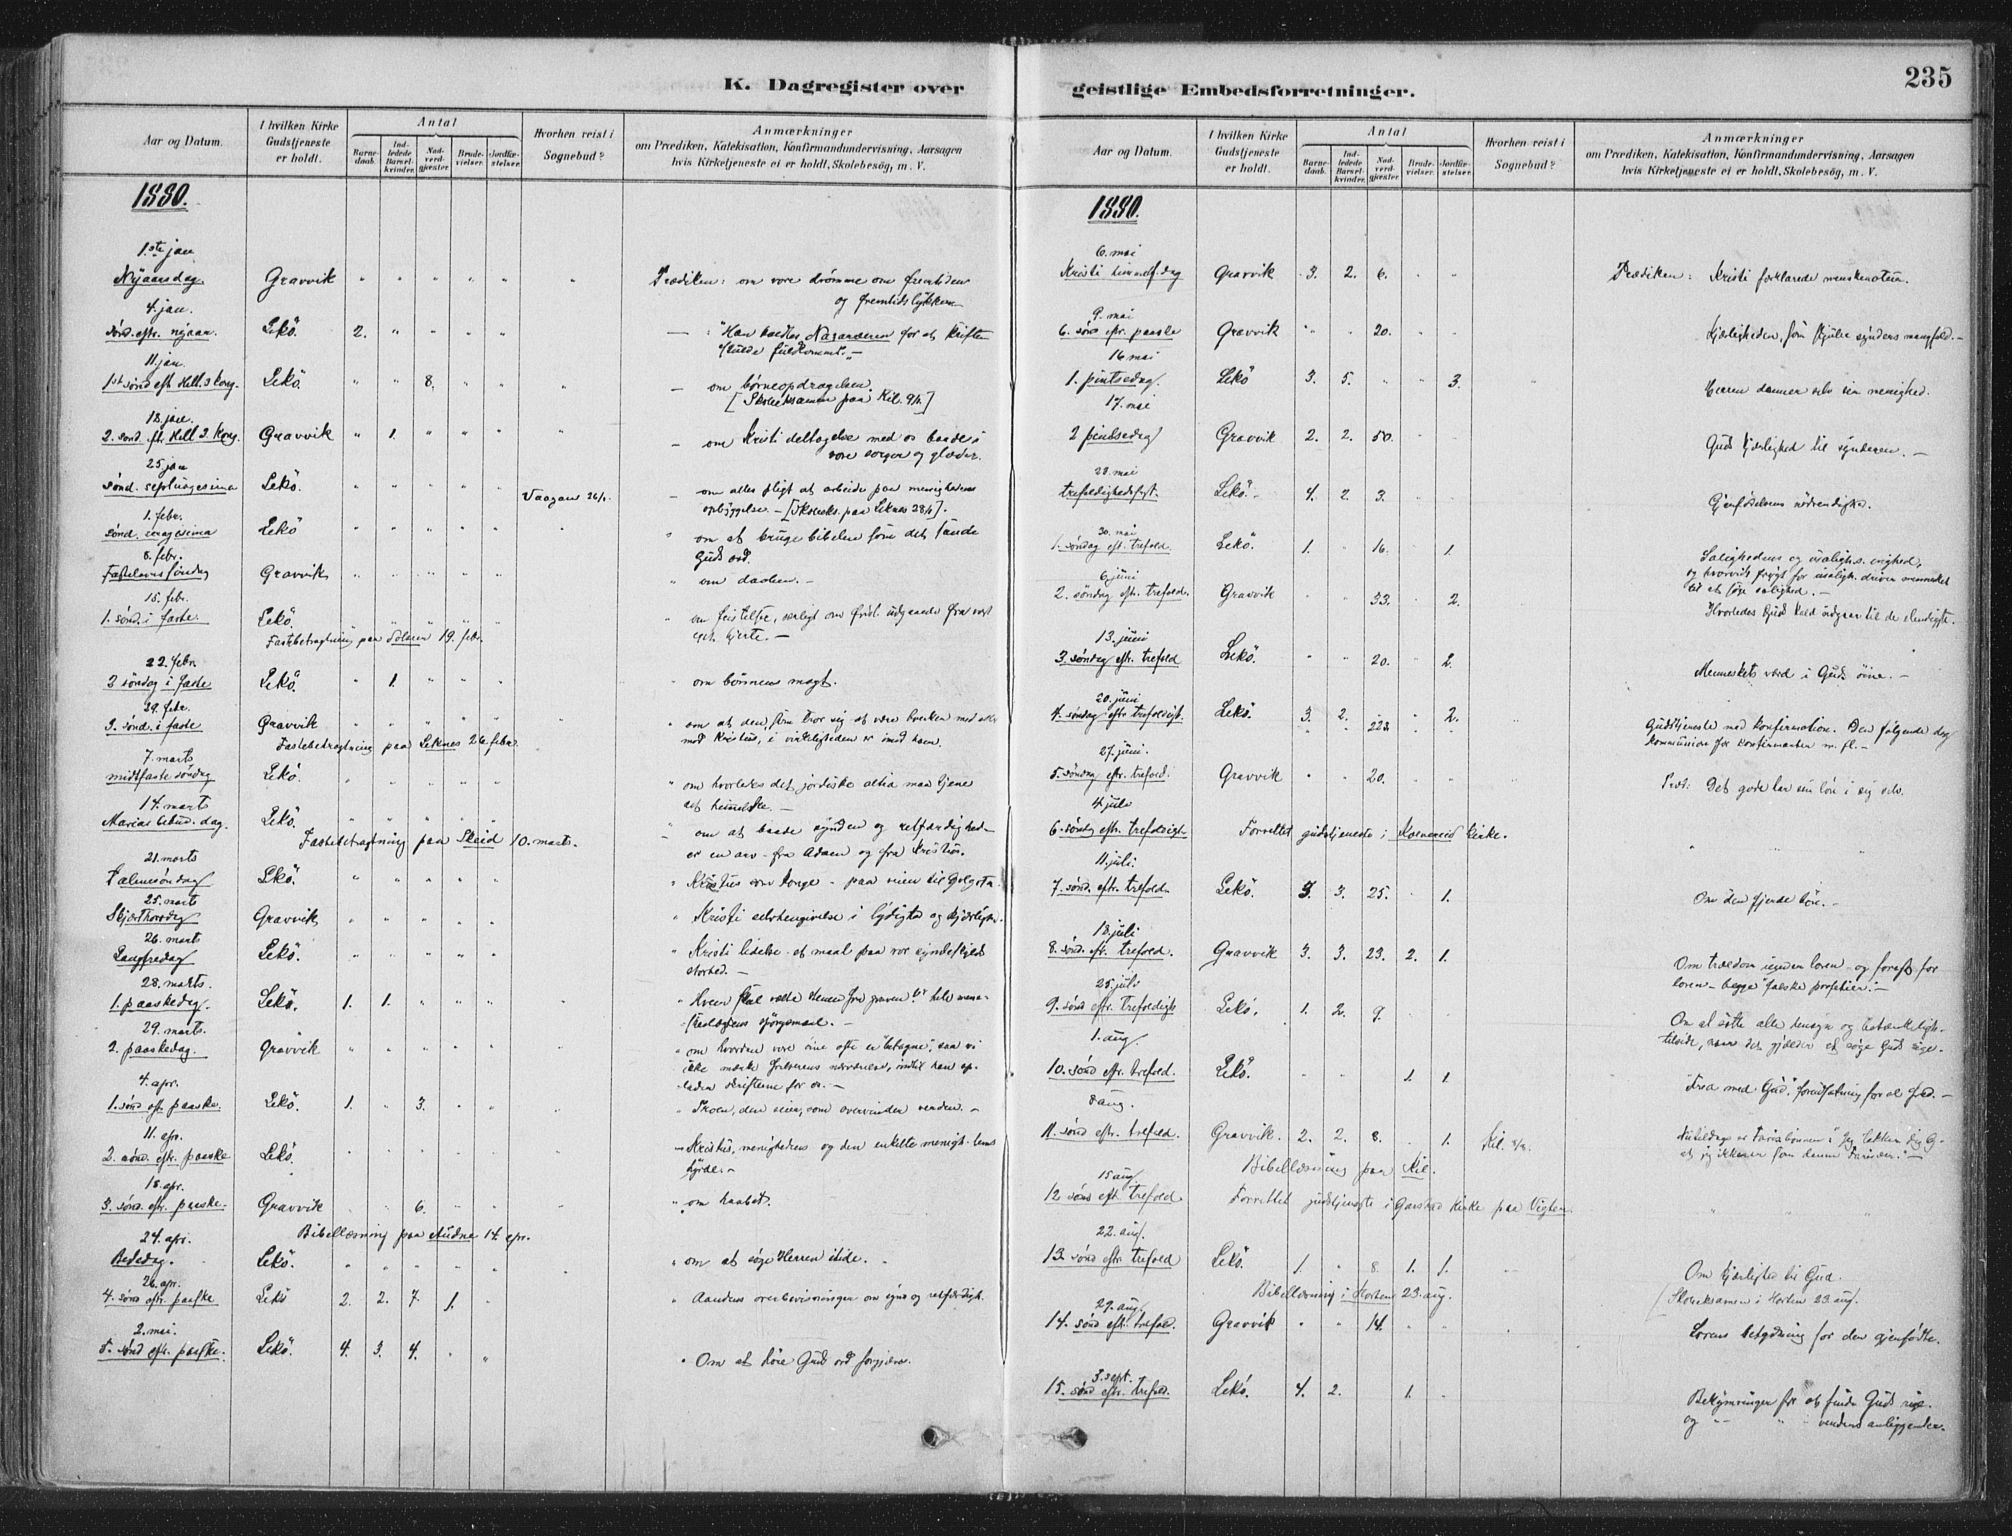 K. Dagregister over
Aar og Datum.
I hvilken Kirke Gudstjeneste er holdt.
Antal
Barne-daab.
Ind-ledede Barsel-kvinder.
Nad-verd-gjæster.
Brude-vielser.
Jordfæ-stelser.
Hvorhen reist i Sognebud?
Anmærkninger
om Prædiken, Katekisation, Konfirmandundervisning, Aarsagen
hvis Kirketjeneste ei er holdt, Skolebesøg, m. V.
1880.
1ste jan
Nyaarsdag. Gravvik " " " " " " Prædiken: om vore drömme om fremtiden
og fremtidslykken
4. jan.
sönd. eftr. nyaar. Lekö. 2. " " " " — : "Han kaldtes Nazaræeren for at skriften
skulde fuldkommes."
11. jan.
1st sönd eft Hell. 3 kong. Lekö. " " 8. " " " — om börneopdragelsen.
[Skoleeksamen paa Kil. 9/1.]
18. jan.
2. sönd. eftr. Hell. 3. kong. Gravvik " 1. " " " " — om Kristi deltagelse med os baade i
vore sorger og glæder.
25 jan
sönd. septuagesima Lekö. " " " " " Vaagan 26/1. — om alles pligt at arbeide paa menighedens
opbyggelse. — [Skoleeks. paa Leknes 28/1].
1. febr.
sönd. sexagesima Lekö " " " " " " " om at bruge bibelen som det sande
Guds ord.
8. febr.
Fastelavns söndag Gravvik " " " " " " om daaben. —
15. febr.
1. sönd. i faste. Lekö. " " " " " " om fristelse, særligt om frist. udgaaende fra vort
eget hjerte. —
Fastebetragtning paa Solsem 19. febr.
22. febr.
2 söndag i faste Lekö. " 1. " " " " om bönnens magt.
29. febr.
3. sönd. i faste Gravvik " " " " " " om at den, som tror sig at være hverken med eller
mod Kristus, i virkeligheden er imod ham.
Fastebetragtning paa Leknes 26 febr.
7. marts
midtfaste söndag Lekö. " " " " " " om hvorledes det jordiske altid maa tjene
det himmelske. —
14. marts
Marias bebud. dag. Lekö. " " " " " — om at baade synden og retfærdighed
er en arv fra Adam og fra Kristus.
Fastebetragtning paa Skeid 10. marts.
21. marts
Palmesöndag Lekö. " " " " " " Kristus som konge - paa veien til Golgata.
25. marts
Skjærthorsdag Gravvik " " " " " " Kristi selvhengivelse i lydighed og kjærlighed.
26. marts
Langfredag Lekö. " " " " " " Kristi lidelse et maal paa vor syndeskylds
storhed. —
28. marts.
1. paaskedag. Lekö. 1. 1. " " " " " Hvem skal vælte stenen fra graven? hele menne-
skeslægtens spörgsmaal. —
29. marts.
2. paaskedag. Gravvik " " " " " " om hvordan vore öine ofte er "betagne", saa vi
ikke mærke frelserens nærværelse, indtil han op-
lader skrifterne for os. —
4. apr.
1. sönd eft. paaske. Lekö. 1. " 3. " " " Troen, den seier, som overvinder verden. —
11. apr.
2. sönd. eftr. paaske Lekö. " " " " " — Kristus, menighedens og den enkelte menigh. lems
hyrde. —
18. apr.
3. sönd. eftr. paaske. Gravvik " " 6. " " " " om haabet.
Bibellæsning paa Audne 14. apr.
24. apr.
Bededag. Lekö. " " " " " " " om at söge Herren itide. —
26. apr.
4. sönd eftr. paaske Lekö 2. 2. 7. 1. " " Aandens overbevisninger om synd og retfærdigh.
2. mai.
5. sönd eftr. paaske. Lekö. 4. 3. 4. " " " Om at höre Guds ord forgjæves.
geistlige Embedsforretninger.
235
Aar og Datum.
I hvilken Kirke Gudstjeneste er holdt.
Antal
Barne-daab.
Ind-ledede Barsel-kvinder.
Nad-verd-gjæster.
Brude-vielser.
Jordfæ-stelser.
Hvorhen reist i Sognebud?
Anmærkninger
om Prædiken, Katekisation, Konfirmandundervisning, Aarsagen
hvis Kirketjeneste ei er holdt, Skolebesøg, m. V.
1880.
6. mai
Kristi himmelf. dag Gravvik 3. 2. 6. " " Prædiken: Kristi forklarede menskenatur.
9. mai
6. sönd eftr. paaske Gravvik " " 20. " " Kjærligheden, som skjuler syndens mangfold. —
16 mai
1. pintsedag. Lekö 3. 5. " " 3. " Herren danner selv sin menighed.
17. mai
2 pintsedag Gravvik 2. 2. 50. " " Guds kjærlighed til synderen. —
23. mai
trefoldighedsfest. Lekö. 4. 2. 3. " " Gjenfödelsens nödvendighed.
30. mai
1. söndag eft. trefold. Lekö. 1. " 16. " 1. Salighedens og usaligh.s evighed,
og hvorvidt frygt for usaligh. driver mennesket
til at söge salighed. —
6 juni
2. söndag eftr. trefold. Gravvik " " 33. " 2. Hvorledes Guds kald udgaar til de elendigste.
13. juni
3. söndag eftr. trefold Lekö. " " 20. " 2. Menneskets værd i Guds öine. —
20. juni
4. söndag eftr trefoldigt. Lekö. 3. 2. " " 2. Gudstjeneste med konfirmation. Den fölgende dag
" " 223. kommunion for konfirmanter m. fl. —
27. juni.
5. söndag eftr. trefold. Gravvik " " 20. " " Præd: Det gode har sin lön i sig selv.
4 juli
6. söndag eftr. trefoldigt. Forrettet gudstjeneste i Kolvereid kirke.
11. juli.
7. sönd. eftr. trefold. Lekö. 3. 3. 25. " 1. Om den fjerde bön. —
18. juli
8. sönd. eftr. trefold. Gravvik 3. 3. 23. 2. 1. Om trældom under loven og foragt for
loven — begge falske profetier. —
25. juli
9. sönd eftr. trefoldigh Lekö. 1. 2. 9. " " Om at sætte alle hensyn og betænkeligh.
tilside, naar det gjælder at söge Guds rige.
1. aug
10. sönd eftr. trefold. Lekö. " " " 1. 1. Fred med Gud, forudsætning for al fred. —
8 aug.
11. sönd eftr. trefold. Gravvik. 2. 2. 8. " 1. Kil. 8/8. Nutildags er "Jeg takker dig G.
at jeg ikke er som denne Farisæer." —
Bibellæsning paa Kil.
15 aug.
12 sönd eft. trefold Forrettet gudstjeneste i Garstad kirke paa Vigten.
22. aug.
13. sönd eftr trefold Lekö. 1. " 8. 1. 1. Om kjærlighed til Gud.
Bibellæsning i Horten 23. aug. [Skoleeksamen i Horten 23. aug.
29. aug.
14. sönd eftr. trefold. Gravvik " " 14. " " Lovens betydning for den gjenfödte.
5. sept.
15. sönd eftr. trefold. Lekö. 4. 2. 1. " Bekymringer for at finde Guds rige.
og " — " " verdens anliggender.